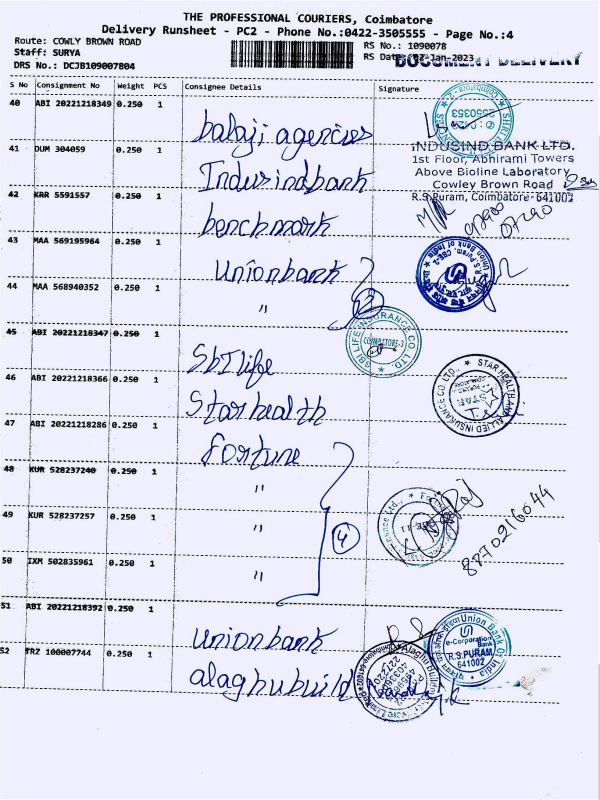 THE PROFESSIONAL COURIERS, Coimbatore
Delivery Runsheet - PC2 - Phone No.:0422-3505555 - Page No.:4
Route: COWLY BROWN ROAD
Staff: SURYA
DRS No.: DCJB109007804
RS No.: 1090078
RS Date: 02-Jan-2023
DOCUMENT DELIVERY
S No Consignment No Weight PCS Consignee Details Signature
40 ABI 20221218349 0.250 1 balaji agencies
41 DUM 304059 0.250 1 Indusindbank
INDUSIND BANK LTD.
1st Floor, Abhirami Towers
Above Bioline Laboratory
Cowley Brown Road
R.S.Puram, Coimbatore-641002
42 KRR 5591557 0.250 1 benchmark
43 MAA 569195964 0.250 1 Unionbank
44 MAA 568940352 0.250 1 "
45 ABI 20221218347 0.250 1 SbI life
SBI LIFE INSURANCE CO. LTD.
COIMBATORE-3
46 ABI 20221218366 0.250 1 Starhealth
STAR HEALTH AND ALLIED INSURANCE CO LTD.
STAR
47 ABI 20221218286 0.250 1 fortune
48 KUR 528237240 0.250 1 "
49 KUR 528237257 0.250 1 "
4
8870216044
50 IXM 502835961 0.250 1 "
51 ABI 20221218392 0.250 1 Unionbank
Union Bank Of India
e-Corporation Bank
R.S.PURAM
641002
52 TRZ 100007744 0.250 1 alaghubuild